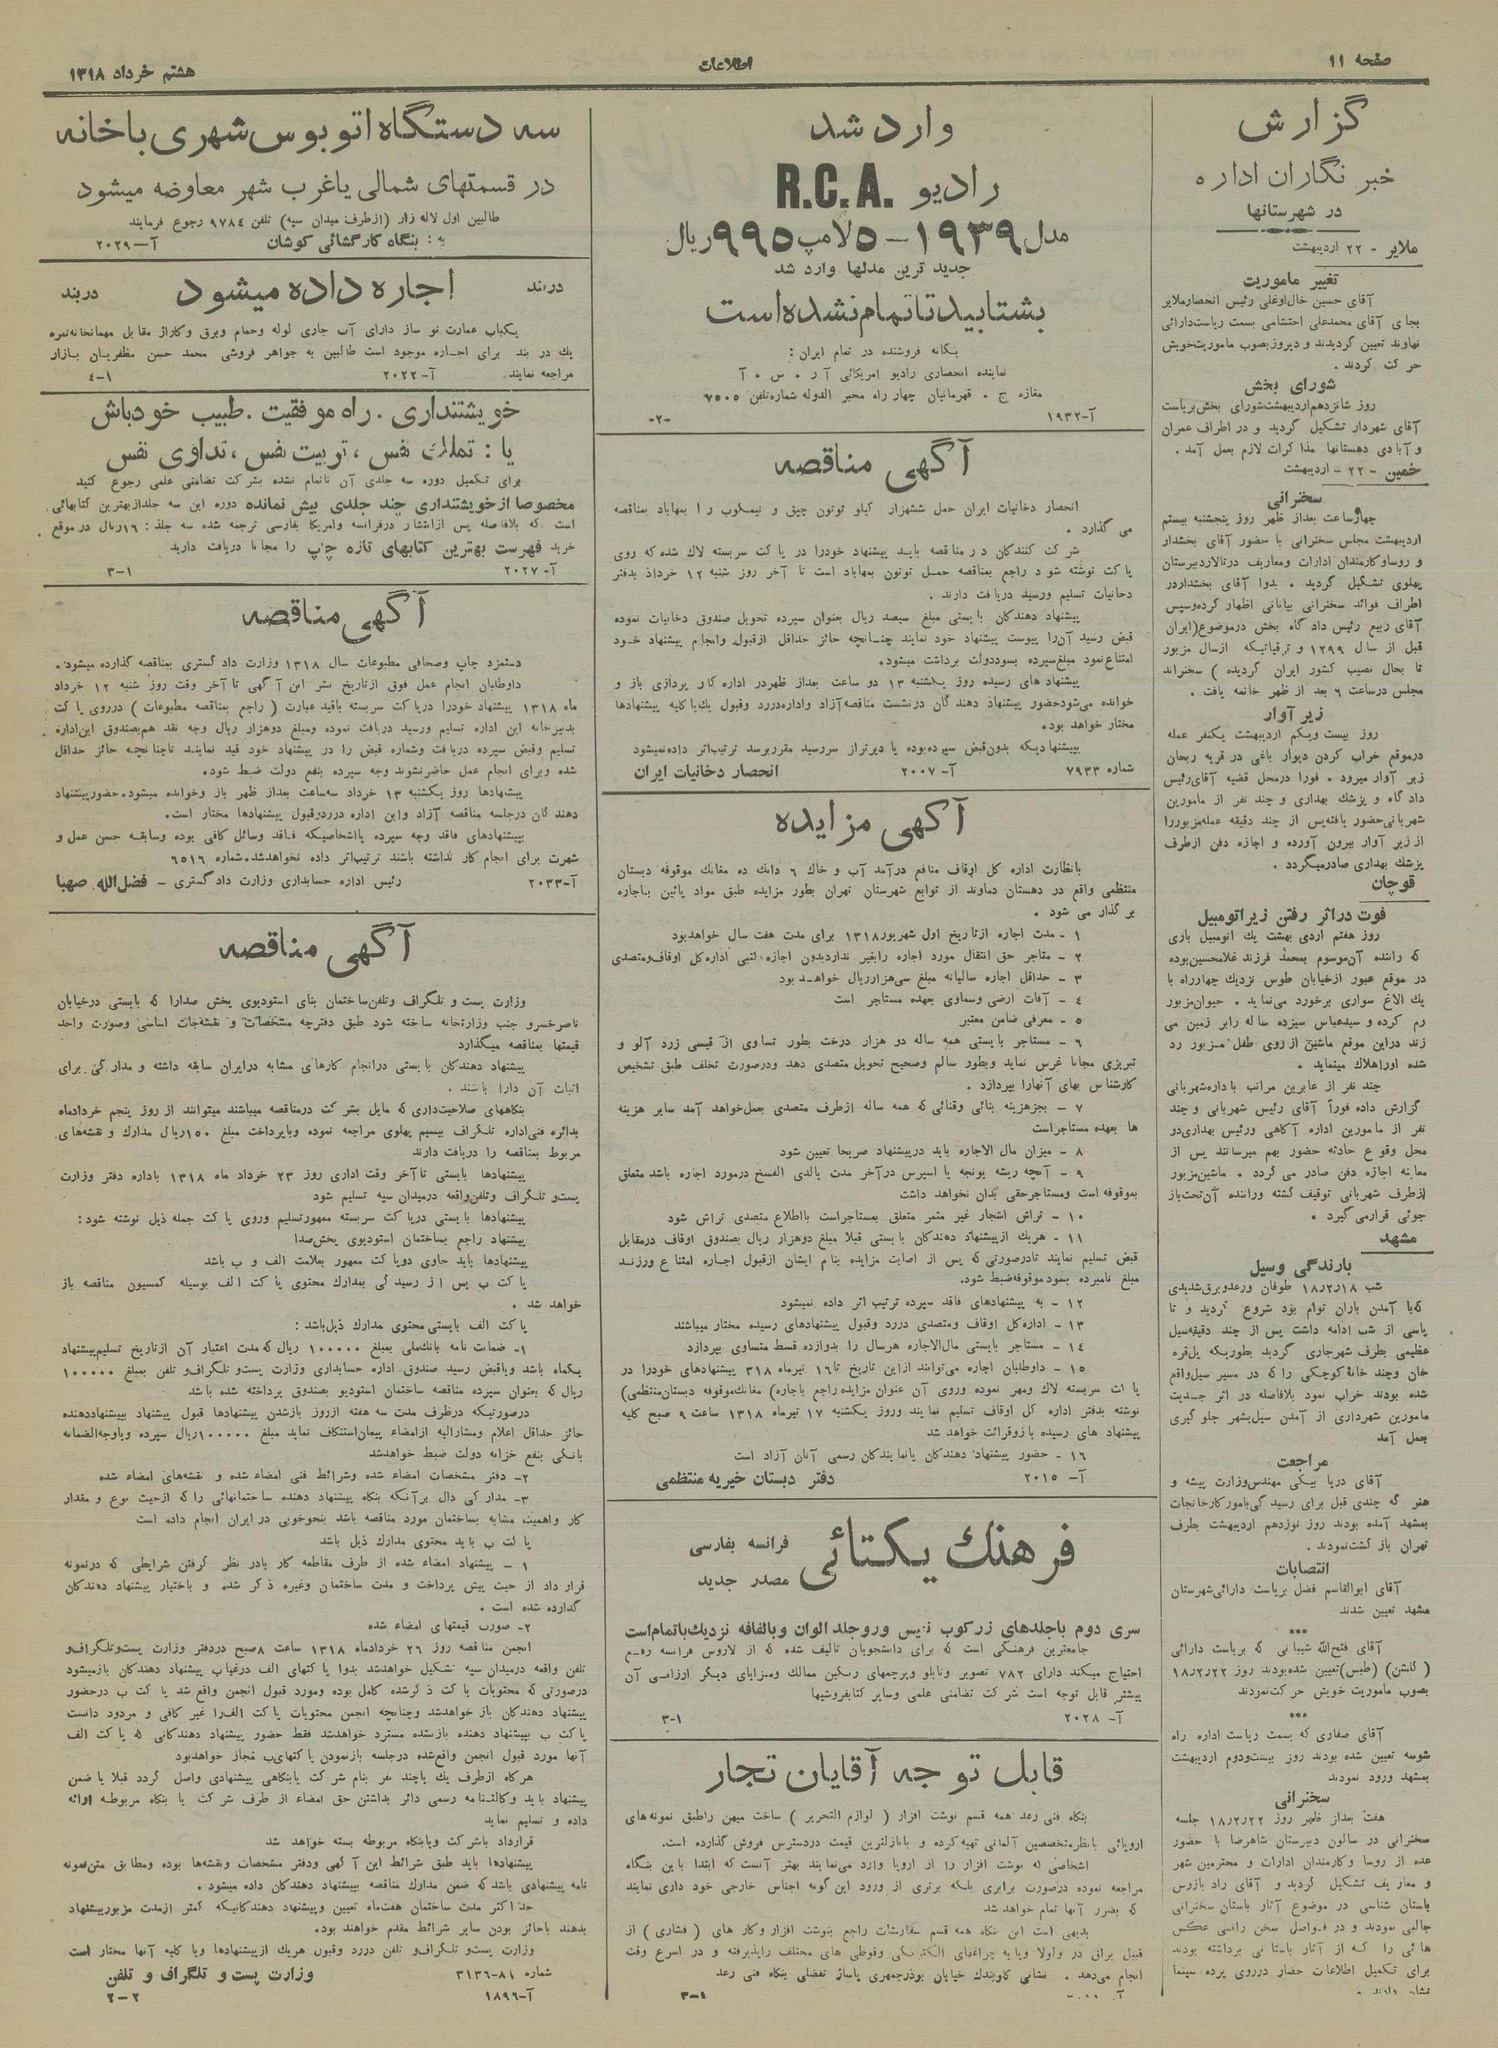 صفحه ۱۱
اطلاعات
هشتم خرداد ۱۳۱۸
گزارش
خبر نگاران اداره
در شهرستانها
ملایر - ۲۲ اردیبهشت
تغییر ماموریت
آقای حسین خال‌اوغلی رئیس انحصار ملایر
بجای آقای محمدعلی احتشامی بسمت ریاست دارائی
نهاوند تعیین گردیدند و دیروز بصوب ماموریت خویش
حرکت کردند .
شورای بخش
روز شانزدهم اردیبهشت شورای بخش بریاست
آقای شهردار تشکیل گردید و در اطراف عمران
و آبادی دهستانها مذاکرات لازم بعمل آمد .
خمین - ۲۲ - اردیبهشت
سخنرانی
چهار ساعت بعداز ظهر روز پنجشنبه بیستم
اردیبهشت مجلس سخنرانی با حضور آقای بخشدار
و روسا و کارمندان ادارات و معاریف در تالار دبیرستان
پهلوی تشکیل گردید . بدوا آقای بخشدار در
اطراف فوائد سخنرانی بیاناتی اظهار کرده و سپس
آقای ربیع رئیس دادگاه بخش در موضوع (ایران
قبل از سال ۱۲۹۹ و ترقیاتیکه از سال مزبور
تا بحال نصیب کشور ایران گردیده ) سخنراند
مجلس در ساعت ۶ بعد از ظهر خاتمه یافت .
زیر آوار
روز بیست ویکم اردیبهشت یکنفر عمله
در موقع خراب کردن دیوار باغی در قریه ریحان
زیر آوار میرود . فورا در محل قضیه آقای رئیس
دادگاه و پزشك بهداری و چند نفر از مامورین
شهربانی حضور یافته پس از چند دقیقه عمله مزبور را
از زیر آوار بیرون آورده و اجازه دفن از طرف
پزشك بهداری صادر میگردد .
قوچان
فوت در اثر رفتن زیر اتومبیل
روز هفتم اردی بهشت یك اتومبیل باری
که راننده آن موسوم بمحمد فرزند غلامحسین بوده
در موقع عبور از خیابان طوس نزدیك چهارراه با
یك الاغ سواری برخورد می‌نماید . حیوان مزبور
رم کرده و سیدعباس سیزده ساله را بر زمین می
زند در این موقع ماشین از روی طفل مزبور رد
شده او را هلاك مینماید .
چند نفر از عابرین مراتب باداره شهربانی
گزارش داده فوراً آقای رئیس شهربانی و چند
نفر از مامورین اداره آگاهی و رئیس بهداری در
محل وقوع حادثه حضور بهم میرسانند پس از
معاینه اجازه دفن صادر می گردد . ماشین مزبور
از طرف شهربانی توقیف گشته و راننده آن تحت باز
جوئی قرار می گیرد .
مشهد
بارندگی وسیل
شب ۱۸ر۲ر۱۸ طوفان و رعد و برق شدیدی
که با آمدن باران توام بود شروع گردید و تا
پاسی از شب ادامه داشت پس از چند دقیقه سیل
عظیمی بطرف شهر جاری گردید بطوریکه پل قره
خان و چند خانه کوچکی را که در مسیر سیل واقع
شده بودند خراب نمود بلافاصله در اثر جدیت
مامورین شهرداری از آمدن سیل بشهر جلو گیری
بعمل آمد
مراجعت
آقای دریا بیگی مهندس وزارت پیشه و
هنر که چندی قبل برای رسیدگی بامور کارخانجات
بمشهد آمده بودند روز نوزدهم اردیبهشت بطرف
تهران باز گشت نمودند .
انتصابات
آقای ابوالقاسم فضل بریاست دارائی شهرستان
مشهد تعیین شدند
***
آقای فتح‌الله شیبانی که بریاست دارائی
( گلشن) (طبس) تعیین شده بودند روز ۲۲ر۲ر۱۸
بصوب ماموریت خویش حرکت نمودند
***
آقای صفاری که بسمت ریاست اداره راه
شوسه تعیین شده بودند روز بیست ودوم اردیبهشت
بمشهد ورود نمودند
سخنرانی
هفت بعداز ظهر روز ۲۲ر۲ر۱۸ جلسه
سخنرانی در سالون دبیرستان شاهرضا با حضور
عده از روسا و کارمندان ادارات و محترمین شهر
و معاریف تشکیل گردید و آقای راد بازرس
باستان شناسی در موضوع آثار باستان سخنرانی
جالبی نمودند و در فواصل سخن رانی عکس
هائی را که از آثار باستانی برداشته بودند
برای تکمیل اطلاعات حضار در روی پرده سینما
نشان دادند .
وارد شد
رادیو R.C.A.
مدل ۱۹۳۹ - ۵ لامپ ۹۹۵ ریال
جدید ترین مدلها وارد شد
بشتابید تا تمام نشده است
یگانه فروشنده در تمام ایران :
نماینده انحصاری رادیو امریکائی آر . س . آ
مغازه ج . قهرمانیان چهار راه مخبر الدوله شماره تلفن ۷۵۰۵
آ-۱۹۳۲ -۲-
آگهی مناقصه
انحصار دخانیات ایران حمل ششهزار کیلو توتون چپق و نیمکوب را بمهاباد بمناقصه
می گذارد .
شرکت کنندگان در مناقصه باید پیشنهاد خودرا در پاکت سربسته لاك شده که روی
پاکت نوشته شود راجع بمناقصه حمل توتون بمهاباد است تا آخر روز شنبه ۱۲ خرداد بدفتر
دخانیات تسلیم و رسید دریافت دارند .
پیشنهاد دهندگان بایستی مبلغ سیصد ریال بعنوان سپرده تحویل صندوق دخانیات نموده
قبض رسید آن را پیوست پیشنهاد خود نمایند چنانچه حائز حداقل از قبول و انجام پیشنهاد خود
امتناع نمود مبلغ سپرده بسود دولت برداشت میشود .
پیشنهاد های رسیده روز یکشنبه ۱۳ دو ساعت بعداز ظهر در اداره کار پردازی باز و
خوانده می‌شود حضور پیشنهاد دهندگان در نشست مناقصه آزاد و اداره در رد و قبول یك یا کلیه پیشنهادها
مختار خواهد بود .
بپیشنهادیکه بدون قبض سپرده بوده یا دیرتر از سررسید مقرر برسد ترتیب اثر داده نمیشود
شماره ۷۹۳۳ آ- ۲۰۰۷ انحصار دخانیات ایران
آگهی مزایده
بانظارت اداره کل اوقاف منافع درآمد آب و خاك ۶ دانك ده مغانك موقوفه دبستان
منتظمی واقع در دهستان دماوند از توابع شهرستان تهران بطور مزایده طبق مواد پائین باجاره
بر گذار می شود .
۱ - مدت اجاره از تاریخ اول شهریور ۱۳۱۸ برای مدت هفت سال خواهد بود
۲ - متاجر حق انتقال مورد اجاره را بغیر ندارد بدون اجازه کتبی اداره کل اوقاف و متصدی
۳ - حداقل اجاره سالیانه مبلغ سی هزار ریال خواهد بود
۴ - آفات ارضی و سماوی بعهده مستاجر است
۵ - معرفی ضامن معتبر
۶ - مستاجر بایستی همه ساله دو هزار درخت بطور تساوی از قیسی زرد آلو و
تبریزی مجانا غرس نماید و بطور سالم وصحیح تحویل متصدی دهد و در صورت تخلف طبق تشخیص
کارشناس بهای آنهارا بپردازد .
۷ - بجز هزینه بنائی و قنائی که همه ساله از طرف متصدی بعمل خواهد آمد سایر هزینه
ها بعهده مستاجر است
۸ - میزان مال الاجاره باید در پیشنهاد صریحا تعیین شود
۹ - آنچه ریشه یونجه یا اسپرس در آخر مدت یالدی الفسخ در مورد اجاره باشد متعلق
بموقوفه است و مستاجر حقی بدان نخواهد داشت
۱۰ - تراش اشجار غیر مثمر متعلق بمستاجر است با اطلاع متصدی تراش شود
۱۱ - هریك از پیشنهاد دهندگان بایستی قبلا مبلغ دو هزار ریال بصندوق اوقاف در مقابل
قبض تسلیم نمایند تا در صورتی که پس از اصابت مزایده بنام ایشان از قبول اجاره امتناع ورزند
مبلغ نامبرده بسود موقوفه ضبط شود .
۱۲ - به پیشنهادهای فاقد سپرده ترتیب اثر داده نمیشود
۱۳ - اداره کل اوقاف و متصدی در رد و قبول پیشنهادهای رسیده مختار میباشند
۱۴ - مستاجر بایستی مال‌الاجاره هرسال را بدوازده قسط متساوی بپردازد
۱۵ - داوطلبان اجاره می‌توانند از این تاریخ تا ۱۶ تیرماه ۳۱۸ پیشنهادهای خودرا در
پاکت سربسته لاك ومهر نموده و روی آن عنوان مزایده راجع باجاره) مغانك موقوفه دبستان منتظمی)
نوشته بدفتر اداره کل اوقاف تسلیم نمایند و روز یکشنبه ۱۷ تیرماه ۱۳۱۸ ساعت ۹ صبح کلیه
پیشنهاد های رسیده بازو قرائت خواهد شد
۱۶ - حضور پیشنهاد دهندگان یا نمایندگان رسمی آنان آزاد است
آ- ۲۰۱۵ دفتر دبستان خیریه منتظمی
فرهنك یکتائی
فرانسه بفارسی
مصدر جدید
سری دوم باجلدهای زرکوب نفیس و روجلد الوان و بالفافه نزدیك باتمام است
جامعترین فرهنگی است که برای دانشجویان تالیف شده که از لاروس فرانسه رفع
احتیاج میکند دارای ۷۸۲ تصویر وتابلو وپرچمهای رنگین ممالك و مزایای دیگر ارزانی آن
بیشتر قابل توجه است شرکت تضامنی علمی و سایر کتابفروشیها
آ- ۲۰۲۸ ۳-۱
قابل توجه آقایان تجار
بنگاه فنی رعد همه قسم نوشت افزار ( لوازم التحریر ) ساخت میهن را طبق نمونه‌های
اروپائی بانظر متخصصین آلمانی تهیه کرده و بانازلترین قیمت در دسترس فروش گذارده است .
اشخاصی که نوشت افزار را از اروپا وارد می‌نمایند بهتر آنست که ابتدا باین بنگاه
مراجعه نموده در صورت برابری بلکه برتری از ورود این گونه اجناس خارجی خود داری نمایند
که بضرر آنها تمام خواهد شد
بدیهی است این بنگاه همه قسم سفارشات راجع بنوشت افزار و کار های ( فشاری ) از
قبیل یراق در و لولا و پایه چراغهای الکتریکی و قوطی های مختلف را پذیرفته و در اسرع وقت
انجام می‌دهد . نشانی کاوبندك خیابان بوذرجمهری پاساژ تفضلی بنگاه فنی رعد
۳-۱
سه دستگاه اتوبوس شهری باخانه
در قسمتهای شمالی یا غرب شهر معاوضه میشود
طالبین اول لاله زار (از طرف میدان سپه) تلفن ۹۷۸۴ رجوع فرمایند
به : بنگاه کارگشائی کوشان آ-۲۰۲۹
دربند اجاره داده میشود دربند
یکباب عمارت نو ساز دارای آب جاری لوله و حمام وبرق و گاراژ مقابل مهمانخانه نمره
یك در بند برای اجاره موجود است طالبین به جواهر فروشی محمد حسن مظفریان بازار
مراجعه نمایند. آ-۲۰۲۲ ۴-۱
خویشتنداری . راه موفقیت . طبیب خودباش
یا : تملك نفس ، تربیت نفس ، تداوی نفس
برای تکمیل دوره سه جلدی آن تاتمام نشده بشرکت تضامنی علمی رجوع کنید
مخصوصا از خویشتنداری چند جلدی بیش نمانده دوره این سه جلد از بهترین کتابهائی
است که بلافاصله پس از انتشار در فرانسه و امریکا بفارسی ترجمه شده سه جلد : ۱۶ ریال در موقع
خرید فهرست بهترین کتابهای تازه چاپ را مجانا دریافت دارید
آ- ۲۰۲۷ ۳-۱
آگهی مناقصه
دستمزد چاپ وصحافی مطبوعات سال ۱۳۱۸ وزارت دادگستری بمناقصه گذارده میشود .
داوطلبان انجام عمل فوق از تاریخ نشر این آگهی تا آخر وقت روز شنبه ۱۲ خرداد
ماه ۱۳۱۸ پیشنهاد خودرا در پاکت سربسته باقید عبارت ( راجع بمناقصه مطبوعات ) در روی پاکت
بدبیرخانه این اداره تسلیم و رسید دریافت نموده و مبلغ دوهزار ریال وجه نقد هم بصندوق این اداره
تسلیم و قبض سپرده دریافت و شماره قبض را در پیشنهاد خود قید نمایند تا چنانچه حائز حداقل
شده و برای انجام عمل حاضر نشوند وجه سپرده بنفع دولت ضبط شود .
پیشنهادها روز یکشنبه ۱۳ خرداد سه ساعت بعداز ظهر باز و خوانده میشود . حضور پیشنهاد
دهندگان در جلسه مناقصه آزاد و این اداره در رد و قبول پیشنهادها مختار است .
بپیشنهادهای فاقد وجه سپرده یا اشخاصیکه فاقد وسائل کافی بوده و سابقه حسن عمل و
شهرت برای انجام کار نداشته باشند ترتیب اثر داده نخواهد شد . شماره ۶۵۱۶
آ-۲۰۳۳ رئیس اداره حسابداری وزارت دادگستری - فضل‌الله صهبا
آگهی مناقصه
وزارت پست و تلگراف و تلفن ساختمان بنای استودیوی پخش صدارا که بایستی در خیابان
ناصر خسرو جنب وزارتخانه ساخته شود طبق دفترچه مشخصات و نقشجات اساسی و صورت واحد
قیمتها بمناقصه میگذارد
پیشنهاد دهندگان بایستی در انجام کارهای مشابه در ایران سابقه داشته و مدارکی برای
اثبات آن دارا باشند .
بنگاههای صلاحیت‌داری که مایل بشرکت در مناقصه میباشند میتوانند از روز پنجم خردادماه
بدائره فنی اداره تلگراف بیسیم پهلوی مراجعه نموده و باپرداخت مبلغ ۱۵۰ ریال مدارك و نقشه‌های
مربوط بمناقصه را دریافت دارند
پیشنهادها بایستی تا آخر وقت اداری روز ۲۳ خرداد ماه ۱۳۱۸ باداره دفتر وزارت
پست و تلگراف و تلفن واقعه در میدان سپه تسلیم شود
پیشنهادها بایستی در پاکت سربسته ممهور تسلیم و روی پاکت جمله ذیل نوشته شود :
پیشنهاد راجع بساختمان استودیوی پخش صدا
پیشنهادها باید حاوی دو پاکت ممهور بعلامت الف و ب باشد
پاکت ب پس از رسیدگی بمدارك محتوی پاکت الف بوسیله کمسیون مناقصه باز
خواهد شد .
پاکت الف بایستی محتوی مدارك ذیل باشد :
۱- ضمانت نامه بانك ملی بمبلغ ۱۰۰۰۰۰ ریال که مدت اعتبار آن از تاریخ تسلیم پیشنهاد
یکماه باشد و یا قبض رسید صندوق اداره حسابداری وزارت پست و تلگراف و تلفن بمبلغ ۱۰۰۰۰۰
ریال که بعنوان سپرده مناقصه ساختمان استودیو بصندوق پرداخته شده باشد
در صورتیکه در ظرف مدت سه هفته از روز باز شدن پیشنهادها قبول پیشنهاد بپیشنهاد دهنده
حائز حداقل اعلام و مشارالیه از امضاء پیمان استنکاف نماید مبلغ ۱۰۰۰۰۰ ریال سپرده و یا وجه الضمانه
بانکی بنفع خزانه دولت ضبط خواهد شد
۲- دفتر مشخصات امضاء شده و شرائط فنی امضاء شده و نقشه‌های امضاء شده
۳- مدارکی دال بر آنکه بنگاه پیشنهاد دهنده ساختمانهائی را که از حیث نوع و مقدار
کار و اهمیت مشابه بساختمان مورد مناقصه باشد بنحو خوبی در ایران انجام داده است
پاکت ب باید محتوی مدارك ذیل باشد
۱ - پیشنهاد امضاء شده از طرف مقاطعه کار بادر نظر گرفتن شرایطی که در نمونه
قرار داد از حیث پیش پرداخت و مدت ساختمان وغیره ذکر شده و باختیار پیشنهاد دهندگان
گذارده شده است .
۲- صورت قیمتهای امضاء شده
انجمن مناقصه روز ۲۶ خردادماه ۱۳۱۸ ساعت ۸ صبح در دفتر وزارت پست و تلگراف و
تلفن واقعه در میدان سپه تشکیل خواهد شد بدوا پاکتهای الف در غیاب پیشنهاد دهندگان باز میشود
در صورتی که محتویات پاکت ذکر شده کامل بوده و مورد قبول انجمن واقع شد پاکت ب در حضور
پیشنهاد دهندگان باز خواهد شد و چنانچه انجمن محتویات پاکت الف را غیر کافی و مردود دانست
پاکت ب بپیشنهاد دهنده باز نشده مسترد خواهد شد فقط حضور پیشنهاد دهندگانی که پاکت الف
آنها مورد قبول انجمن واقع شده در جلسه باز نمودن پاکتهای ب مجاز خواهد بود
هرگاه از طرف یك یا چند نفر بنام شرکت یا بنگاهی پیشنهادی واصل گردد قبلا یا ضمن
پیشنهاد باید وکالتنامه رسمی دائر بداشتن حق امضاء از طرف شرکت یا بنگاه مربوطه ارائه
داده و تسلیم نماید
قرارداد با شرکت و یا بنگاه مربوطه بسته خواهد شد
پیشنهادها باید طبق شرائط این آگهی و دفتر مشخصات و نقشه‌ها بوده و مطابق متن نمونه
نامه پیشنهادی باشد که ضمن مدارك مناقصه بپیشنهاد دهندگان داده میشود .
حد اکثر مدت ساختمان هفت ماه تعیین و پیشنهاد دهندگانیکه کمتر از مدت مزبور پیشنهاد
بدهند با حائز بودن سایر شرائط مقدم خواهند بود .
وزارت پست و تلگراف و تلفن در رد و قبول هریك از پیشنهادها و یا کلیه آنها مختار است
شماره ۸۱-۳۱۳۶ وزارت پست و تلگراف و تلفن
آ-۱۸۹۶ ۲-۲